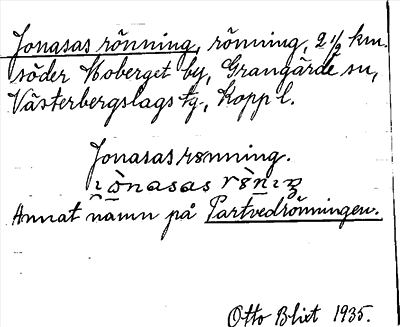 Jonasas rönning, rönning, 2 1/2 km.
söder Moberget by, Grangärde sn,
Västerbergslags tg, Kopp l.
Jonasas rønning.
Annat namn på Partvedrönningen.
Otto Blixt 1935.